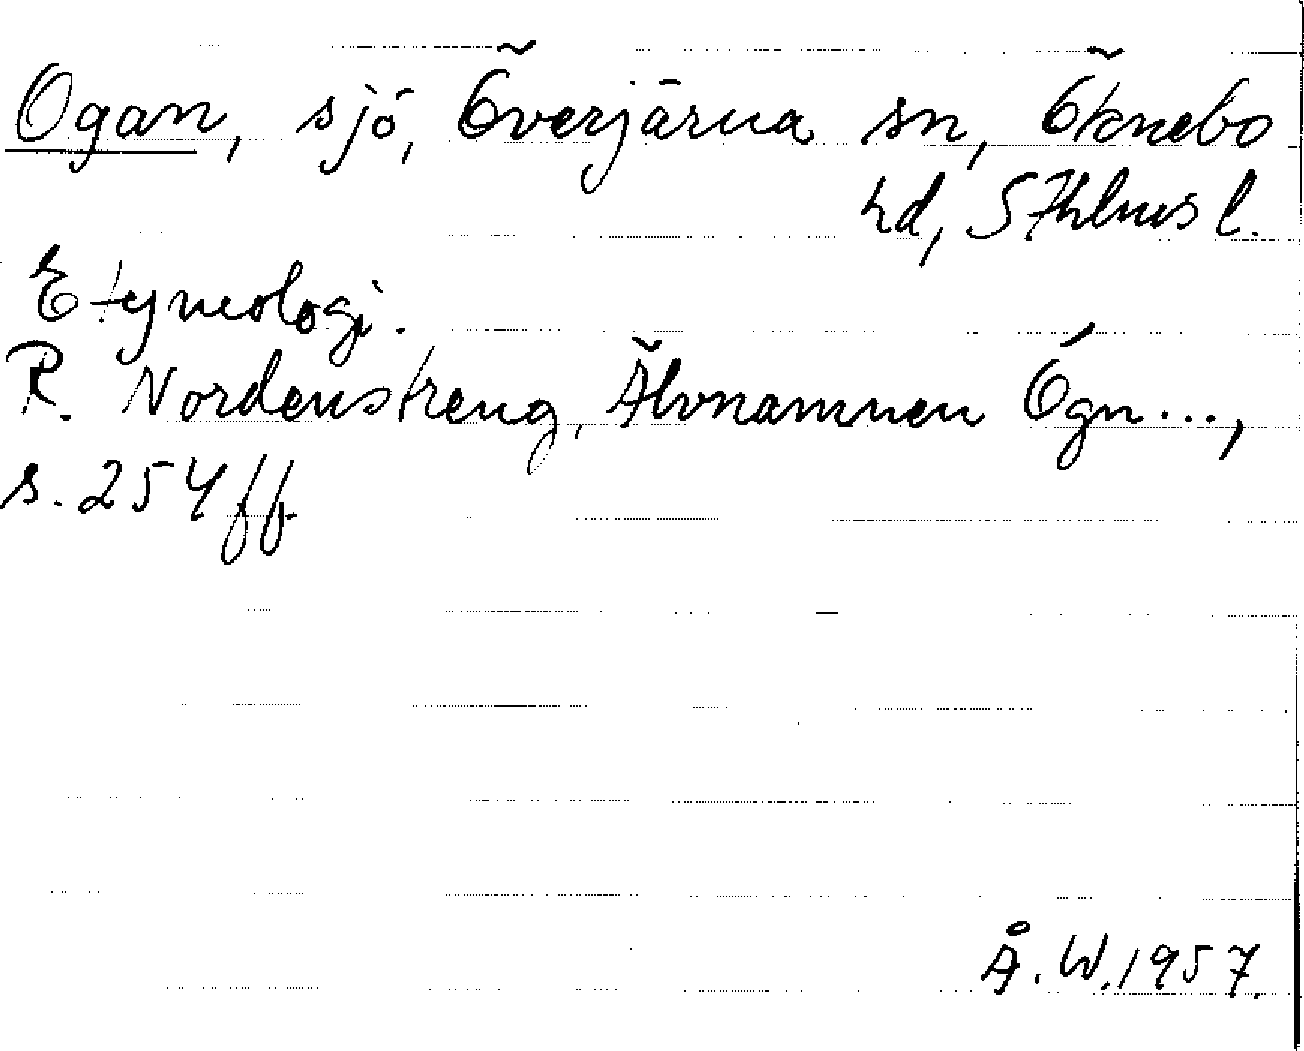 Ogan, sjö, Överjärna sn, Öknebo
hd, Sthlms l.
Etymologi.
R. Nordenstreng, Älvnamnen Ógn...,
s. 254 ff
Å. W. 1957.